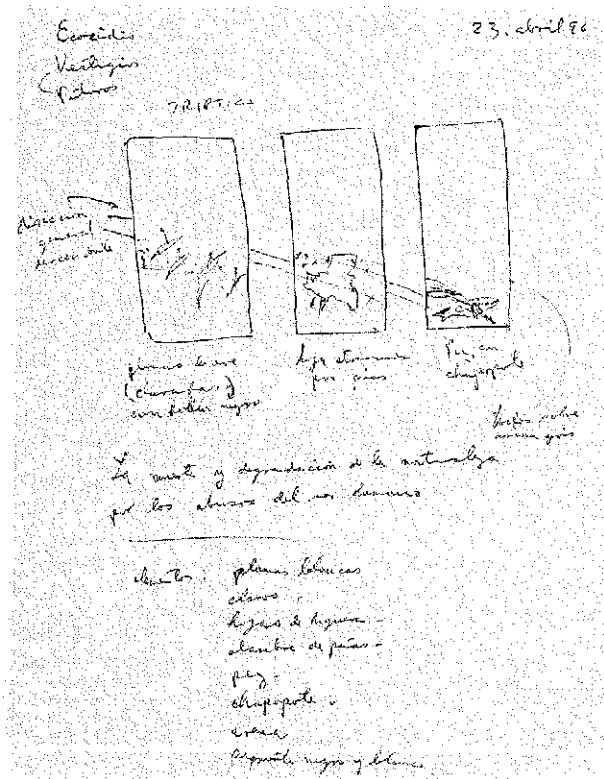 23. abril 96
Ecocidio
Vestigios
TRIPTICO
dirección
general
descendente
plumas de ave
con doblez negro
hoja atravesada
por púas
Pez con
chapopote
todos sobre
arena gris
La muerte y degradación de la naturaleza
por los abusos del ser humano
elementos: plumas blancas
clavos
hojas de higuera -
alambre de púas -
pez -
chapopote .
arena
negro y blanco